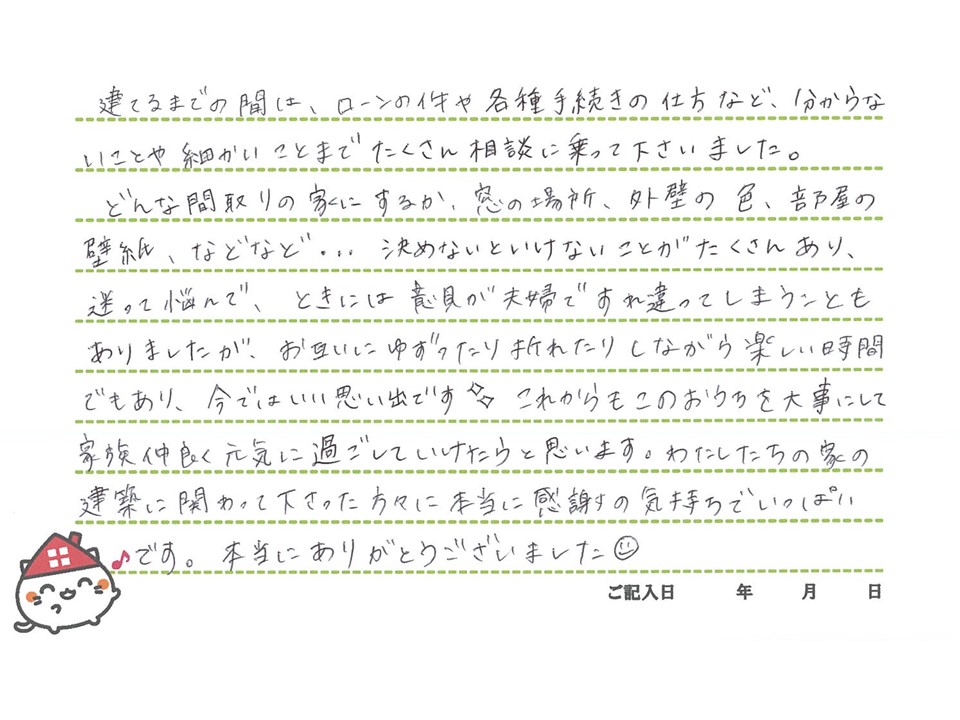 建てるまでの間は、ローンの件や各種手続きの仕方など、分からな
いことや細かいことまでたくさん相談に乗って下さいました。
どんな間取りの家にするか、窓の場所、外壁の色、部屋の
壁紙、などなど・・・決めないといけないことがたくさんあり、
迷って悩んで、ときには意見が夫婦ですれ違ってしまうことも
ありましたが、お互いにゆずったり折れたりしながら楽しい時間
でもあり、今ではいい思い出です✨これからもこのおうちを大事にして
家族仲良く元気に過ごしていけたらと思います。わたしたちの家の
建築に関わって下さった方々に本当に感謝の気持ちでいっぱい
♪です。本当にありがとうございました☺
ご記入日 年 月 日